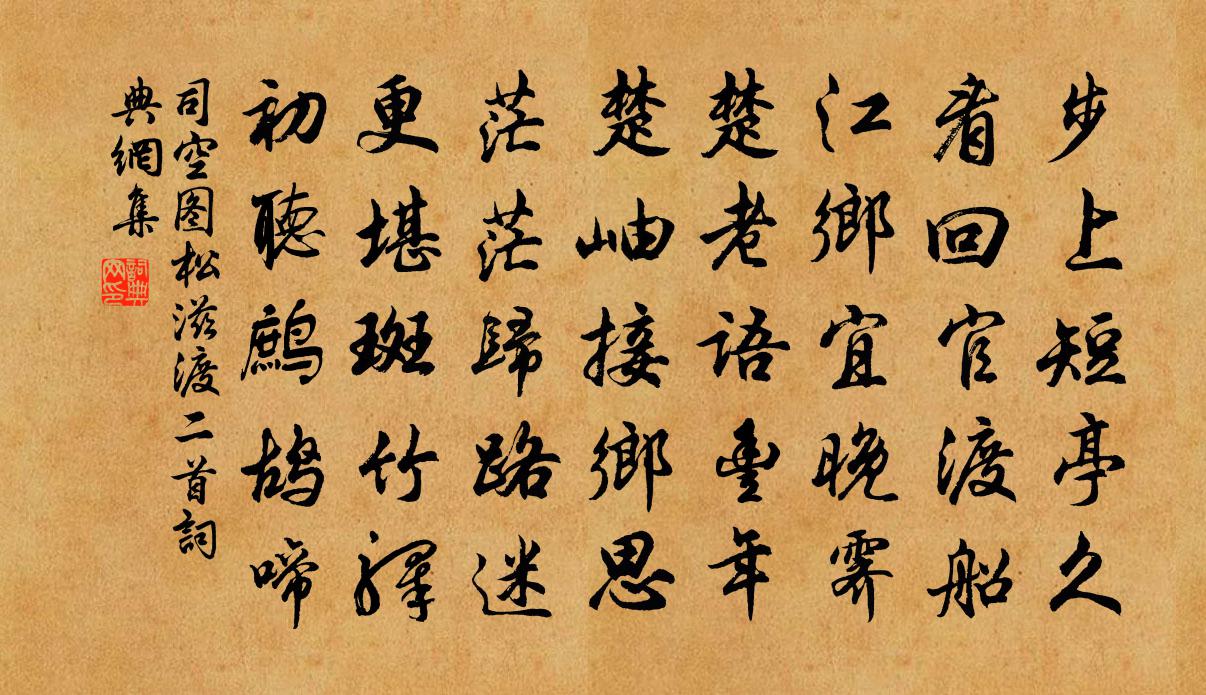 步上短亭久
看回官渡船
江鄉宜晚霽
楚老語豐年
楚岫接鄉思
茫茫歸路迷
更堪斑竹驛
初聽鷓鴣啼
司空图松滋渡二首詞
典網集
詞典
网印